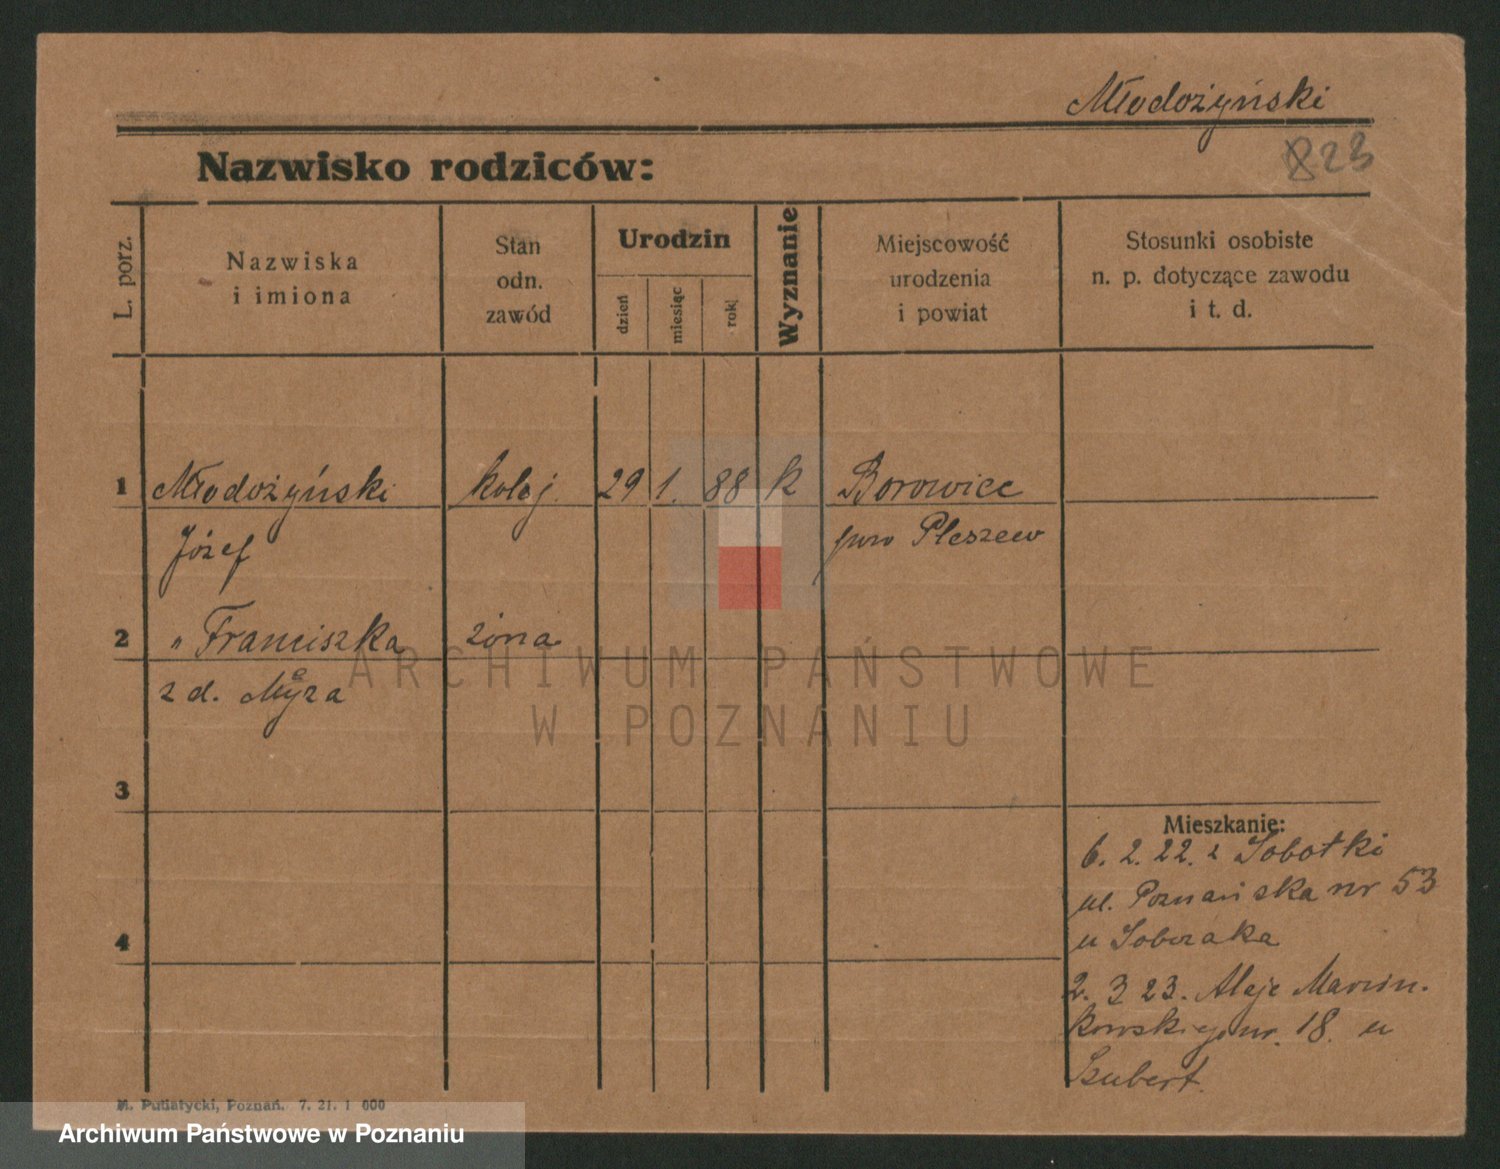 Młodożyński
823
Nazwisko rodziców:
L. porz.
Nazwiska
i imiona
Stan
odn.
zawód
Urodzin
dzień
miesiąc
rok
Wyznanie
Miejscowość
urodzenia
i powiat
Stosunki osobiste
n. p. dotyczące zawodu
i t. d.
1 Młodożyński kolej. 29 1. 88 k Borowice
Józef pow Pleszew
2 " Franciszka żona
z d.
3
4
Mieszkanie:
6. 2. 22. z Sobotki
ul. Poznańska nr 53
u Sobczaka
2. 3 23. Aleje Marcin.
kowskiego nr. 18. u
Szubert.
M. Putiatycki, Poznań. 7. 21. 1 000
ARCHIWUM PAŃSTWOWE
W POZNANIU
Archiwum Państwowe w Poznaniu